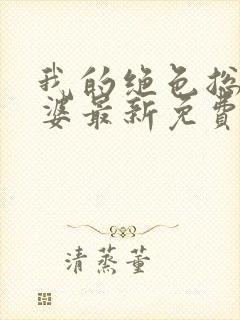 我的绝色总
婆最新免费
清蒸董